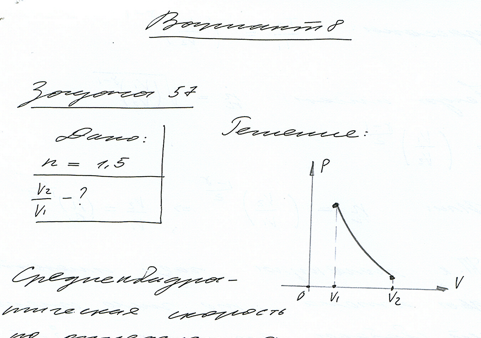 Вариант 8
Задача 57
Дано:
n = 1,5
V2
V1
- ?
Решение:
P
0
V1
V2
V
Среднеквадра-
тическая скорость